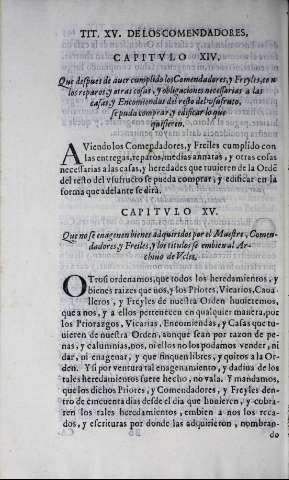 TIT. XV. DE LOS COMENDADORES,
CAPITVLO XIV.
Que despues de auer cumplido los Comendadores, y Freyles, con
los reparos, y otras cosas, y obligaciones necessarias a las
casas, y Encomiendas del resto del vsufruto,
se pueda comprar, y edificar lo que
quisieren.
AViendo los Comẽdadores, y Freiles cumplido con
las entregas, reparos, medias annatas, y otras cosas
necessarias a las casas, y heredades que tuuieren de la Ordẽ
del resto del vsufructo se pueda comprar, y edificar en la
forma que adelante se dirà.
CAPITVLO XV.
Que no se enagenen bienes adquiridos por el Maestre, Comen-
dadores, y Freiles, y los titulos se embien al Ar-
chiuo de Vcles.
OTrosi ordenamos, que todos los heredamientos, y
bienes raizes que nos, y los Priores, Vicarios, Caua-
lleros, y Freyles de nuestra Orden huuieremos,
que a nos, y a ellos pertenecen en qualquier manera, por
los Priorazgos, Vicarias, Encomiendas, y Casas que tu-
uieren de nuestra Orden, aunque sean por razon de pe-
nas, y calumnias, nos, ni ellos no los podamos vender, ni
dar, ni enagenar, y que finquen libres, y quitos a la Or-
den. Y si por ventura tal enagenamiento, y dadiua de los
tales heredamientos fuere hecho, no vala. Y mandamos,
que los dichos Priores, y Comendadores, y Freyles den-
tro de cincuenta dias desde el dia que huuieren, y cobra-
ren los tales heredamientos, embien a nos los reca-
dos, y escrituras por donde las adquirieron, nombran-
do